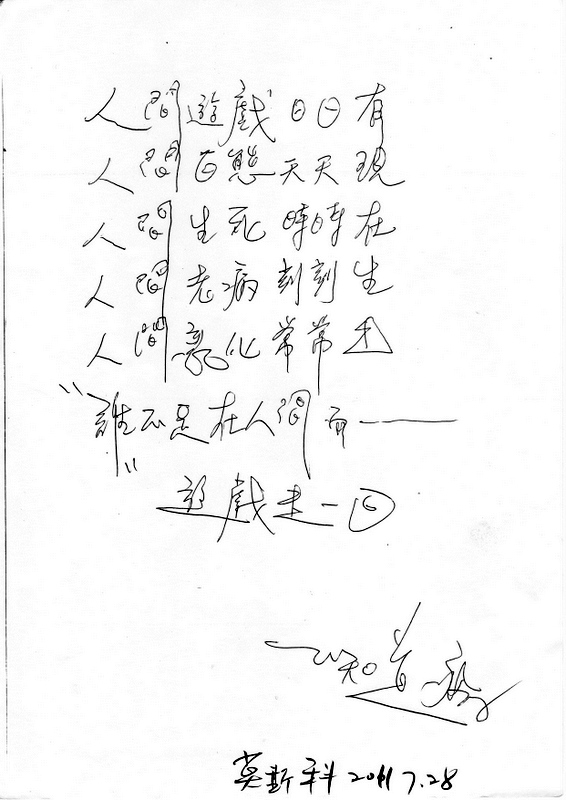 人間遊戲日日有
人間百態天天現
人間生死時時在
人間老病刻刻生
人間變化常常出
“誰不是在人間而——”
遊戲走一回
知道
莫斯科 2011 7.28